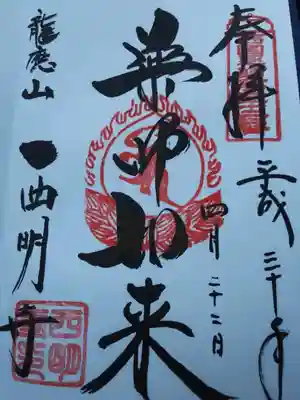 奉拝
平成三十年
四月二十二日
薬師如来
龍應山
西明寺
西明寺